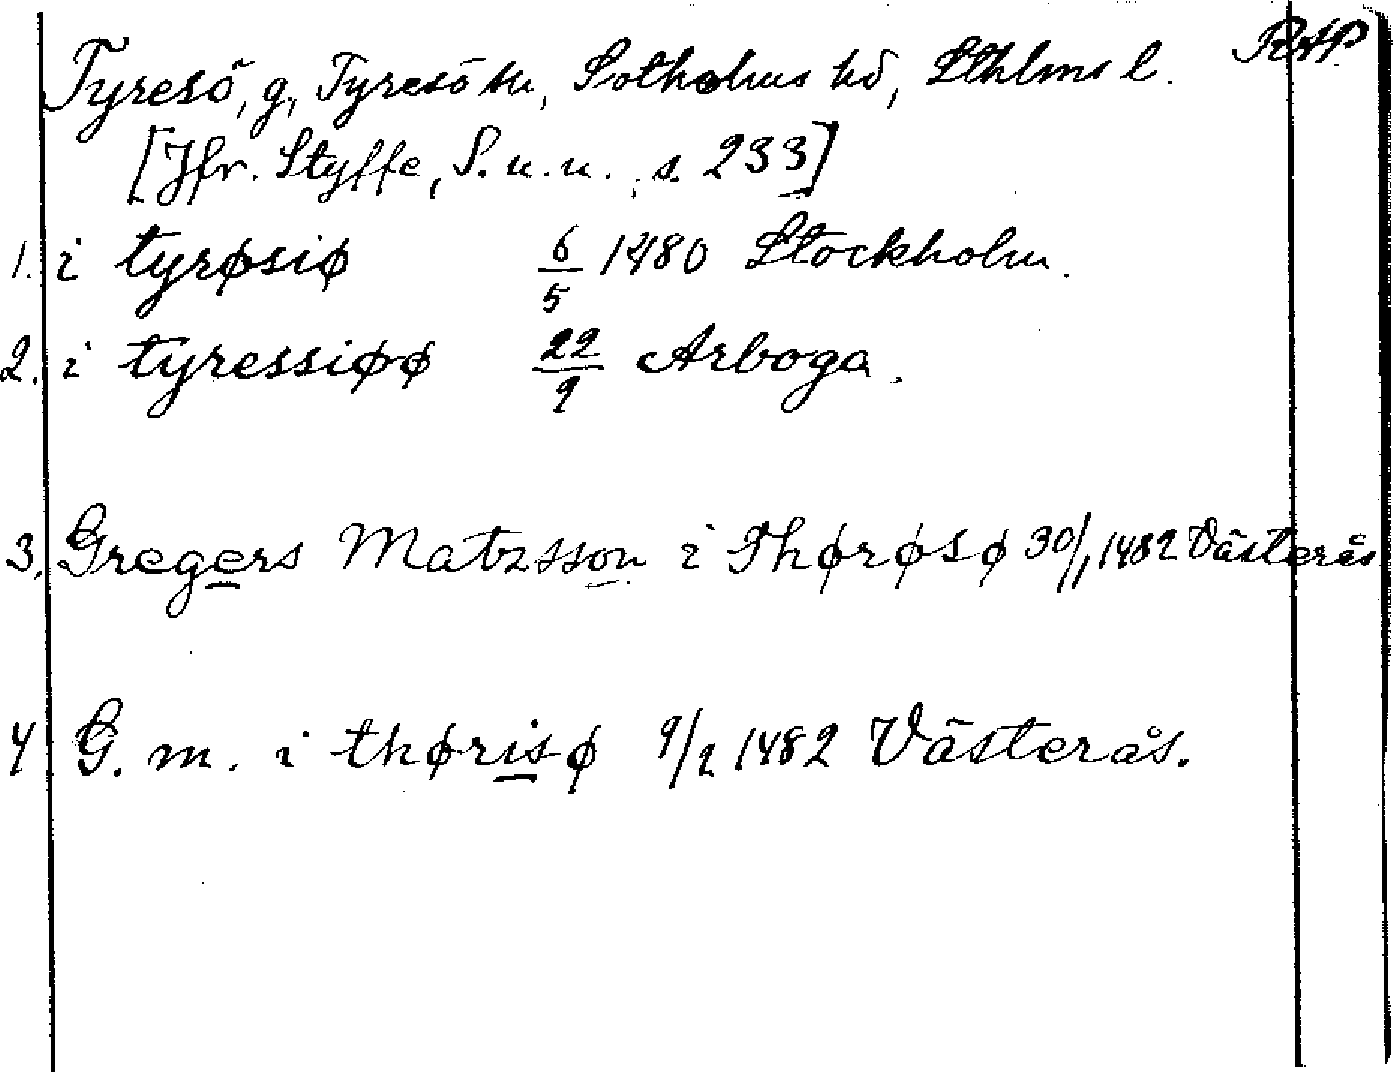 Tyresö, g, Tyresö sn, Sotholms hd, Sthlms l. RAP
[Jfr. Styffe, S.u.u., s. 233]
1. i tyrøsiø 6/5 1480 Stockholm.
2. i tyressiøø 22/9 Arboga.
3. Gregers Matzsson i Thørøsø 30/1 1482 Västerås
4 G. m. i thørisø 9/2 1482 Västerås.